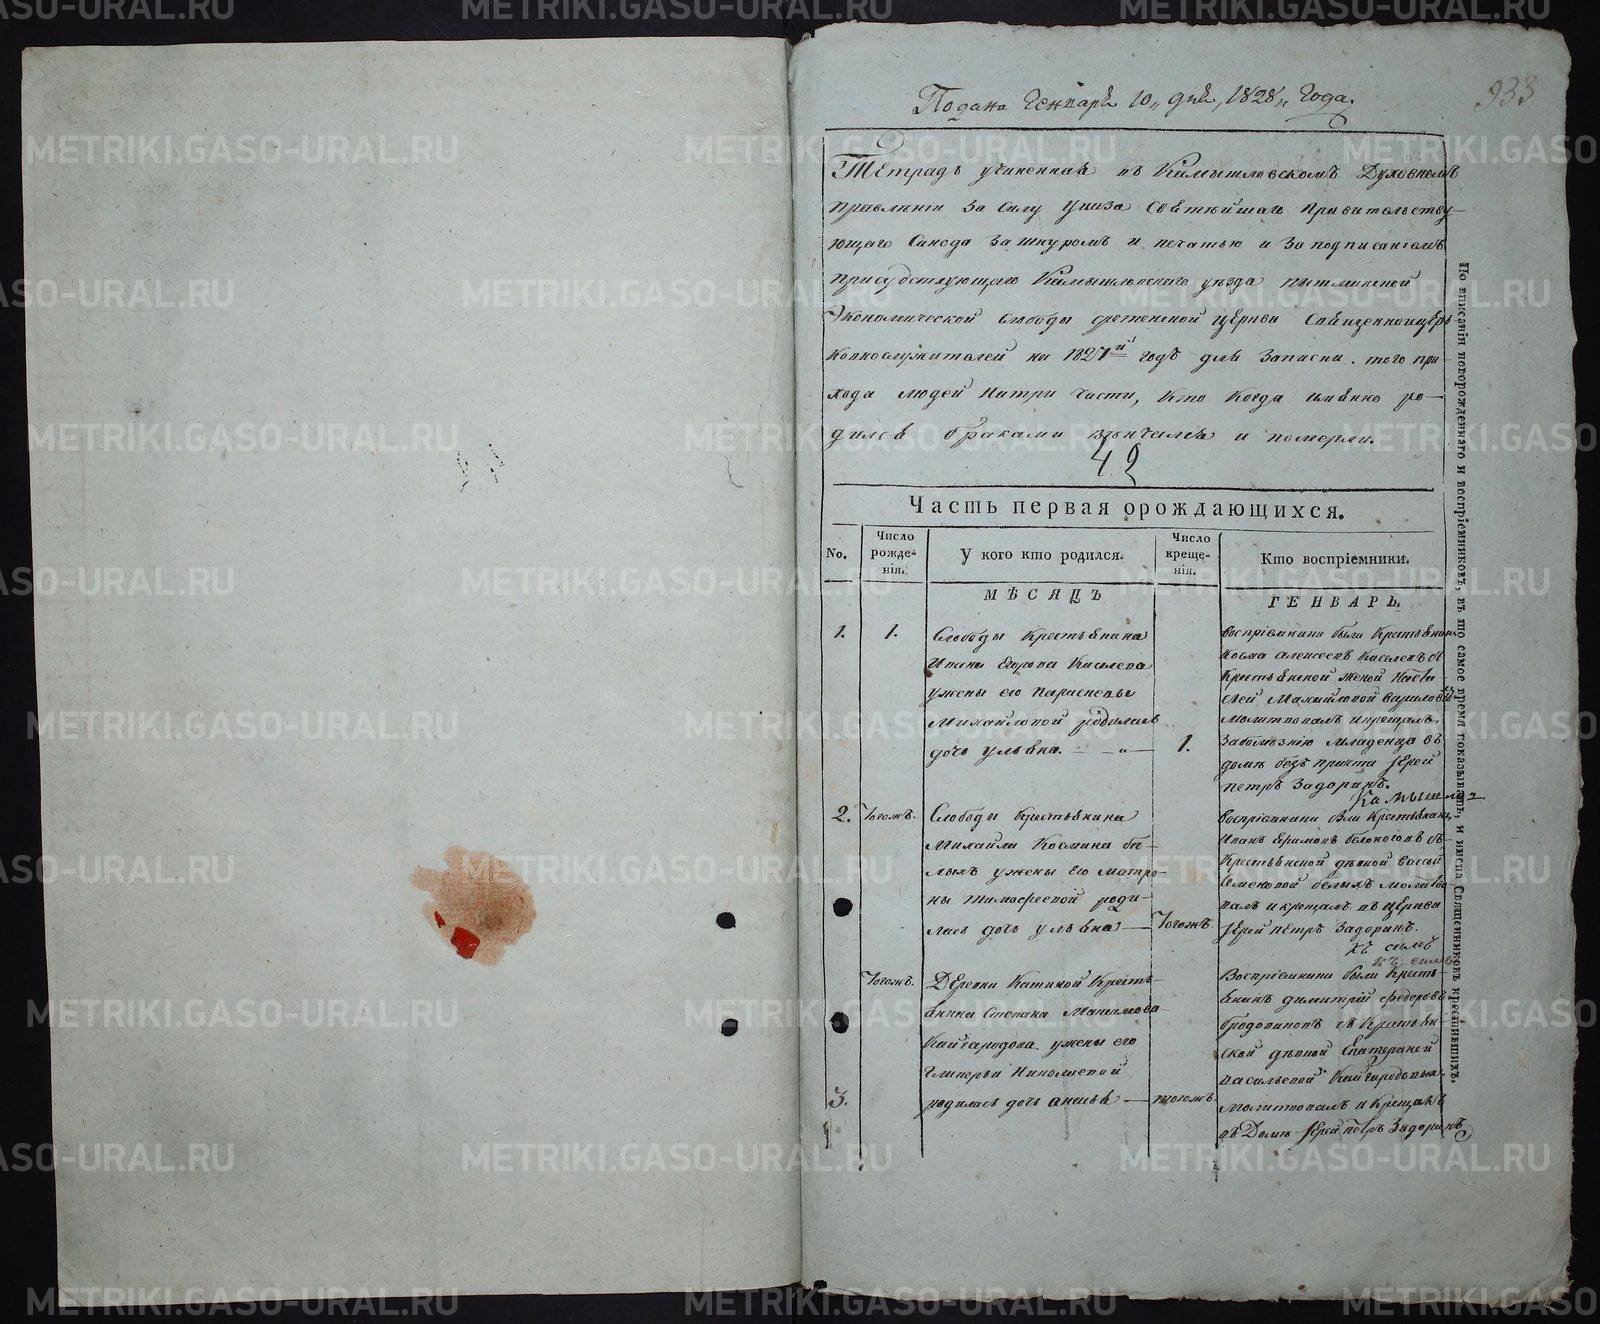 Подана Генваря 10„ дня, 1828„ Года.
933
Тетрадь учиненная въ Камышловскомъ Духовномъ
Правленіи За Силу Указа Святѣйшаго Правительству-
ющаго Синода За шнуромъ и печатью и За подписаніемъ
присудствующаго Камышловскаго уѣзда пышминской
Экономической Слободы срѣтенской церкви Священноицер-
ковнослужителей на 1827й годъ для Записки того при-
хода людей Натри части, Кто Когда имянно ро-
дился браками вѣнчался и померли.
42
Часть первая орождающихся.
No.
Число рожде-нія.
У кого кто родился.
Число креще-нія.
Кто воспріемники.
МѢСЯЦЪ
ГЕНВАРЬ.
1.
1.
Слободы Крестьянина
Ивана Егорова Киселева
ужены его Парасковьи
Михайловой родилась
дочь ульяна. — „ —
1.
воспріемники были Крестьянинъ
Косма алексеевъ Киселевъ и
Крестьянской женой Наста
сьей Михайловой
молитвовалъ икрещалъ
Заболѣзнію младенца въ
домѣ безъ причта Іерей
петръ Задоринъ.
Камышлов
2.
Тогожъ.
Слободы Крестьянина
Михаила Космина бѣ-
лыхъ ужены Его матре-
ны тимофеевой роди-
лась дочь ульяна —
Тогожъ
воспріемники были Крестьянинъ
Иванъ Ефимовъ белоносовъ съ
Крестьянской дѣвкой Вассой
Семеновой белыхъ молитво
валъ икрещалъ въ церкви
Іерей петръ Задоринъ.
3.
Тогожъ.
Деревни Кашиной Кресть-
янина Степана Максимова
Кайгородова ужены его
Гликерьи Николаевой
родилась дочь анисья —
тогожъ
Воспріемники были Кресть-
янинъ димитрій федоровъ
бродовиковъ съ Крестьян-
ской дѣвкой Екатериной
васильевой Кайгородовыхъ
Молитвовалъ и Крещалъ
въ Домѣ Іерей петръ Задоринъ
По вписаніи новорожденнаго и воспріемниковъ, въ то самое время показывать, и имена Священниковъ крестившихъ.
METRIKI.GASO-URAL.RU